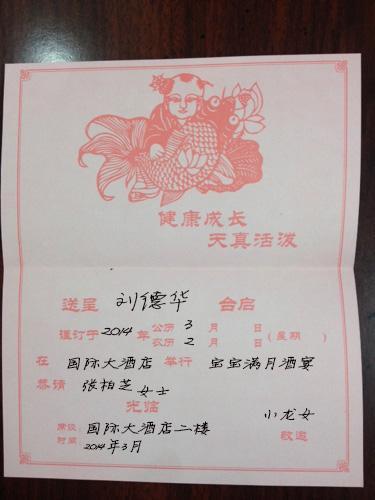 健康成长
天真活泼
送呈 刘德华 台启
谨订于 2014 年 公历 3 月 日 (星期 )
农历 2 月 日
在 国际大酒店 举行 宝宝满月酒宴
恭请 张柏芝女士
光临 小龙女
席设: 国际大酒店二楼 敬邀
时间: 2014年3月